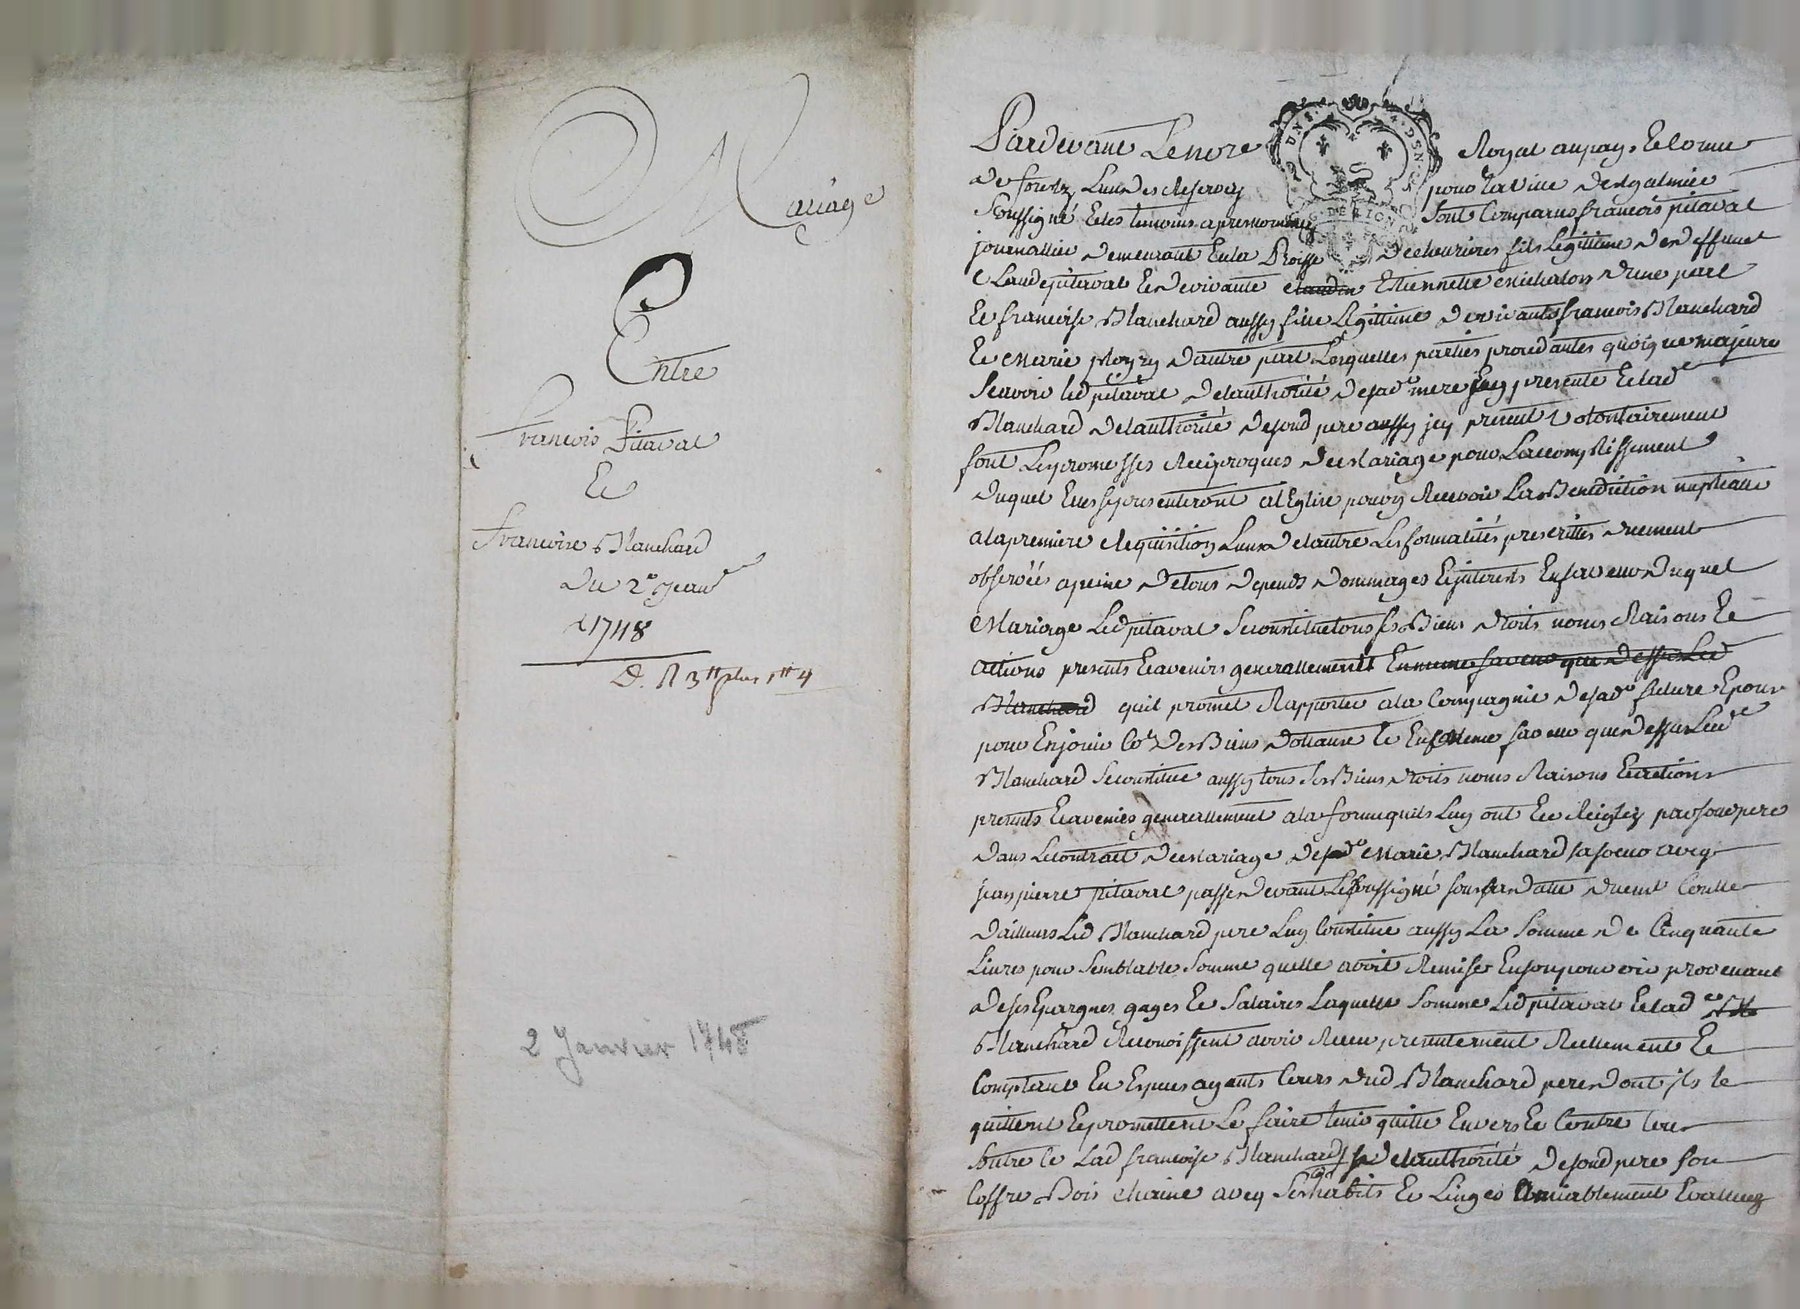 Mariage
Entre
François Pitaval
Et
Francoise Blanchard
Du 2e Janvr
1748
D. R 3tt plus 1tt 4
2 Janvier 1748
Pardevant Le nore Royal au pays Et Comté
de forestz, Lun des Reservez pour la ville de St galmier
Soussigné Et les temoins apres nommez Sont Comparus francois pitaval
journallier demeurant En la Proisse de chevrieres fils Legitime de deffunct
Claude pitaval Et de vivante claudin Etiennette michalon d'une part
Et francoise Blanchard aussy fille Legitime de vivants francois Blanchard
Et Marie d'autre part Lesquelles parties procedantes quoique majeure
Scavoir led pitaval De lauthorité de sade mere jcy presente Et lade
Blanchard de lauthorité de sond pere aussy jcy present volontairement
font Les promesses Reciproques de Mariage pour Laccomplissement
duquel Elles se presenteront a lEglise pour y Recevoir La Benediction nuptialle
a la premiere Requisition Lun de lautre Les formalités prescrittes duement
observées a peine de tous depends dommages Et interests En faveur duquel
Mariage Led pitaval Se constitue tous ses Biens droits noms Raisons Et
actions presents Et avenirs generallement En meme faveur que dessus Lad
Blanchard quil promet Rapporter a la Compagnie de sade future Epouse
pour En jouir Co[e] Des Biens dotaux Et En meme faveur que dessus Lade
Blanchard Se constitue aussy tous Ses Biens droits noms Raisons Et actions
presents Et avenirs generallement a la forme quils Luy ont Eté Reiglez par sond pere
dans Le Contract de Mariage de sade Marie Blanchard sa soeur avec
jean pierre pitaval passé devant Le soussigné sous sa datte duement Conllé
d'ailleurs Led Blanchard pere Luy Constitue aussy La Somme de Cinquante
Livres pour Semblable Somme quelle avoit Remise En son pouvoir provenant
de ses Epargnes gages Et Salaires Laquelle Somme Led pitaval Et lade
Blanchard Reconoissent avoir Receu presentement Reellement Et
Comptant En Especes ayants Cours dud Blanchard pere dont jls le
quittent Et promettent Le faire tenir quitte Envers Et Contre tous
Outre Ce Lad francoise Blanchard de lauthorité de sond pere son
Coffre Bois chaine avec Ses habits Et Linges Amiablement Evalluez